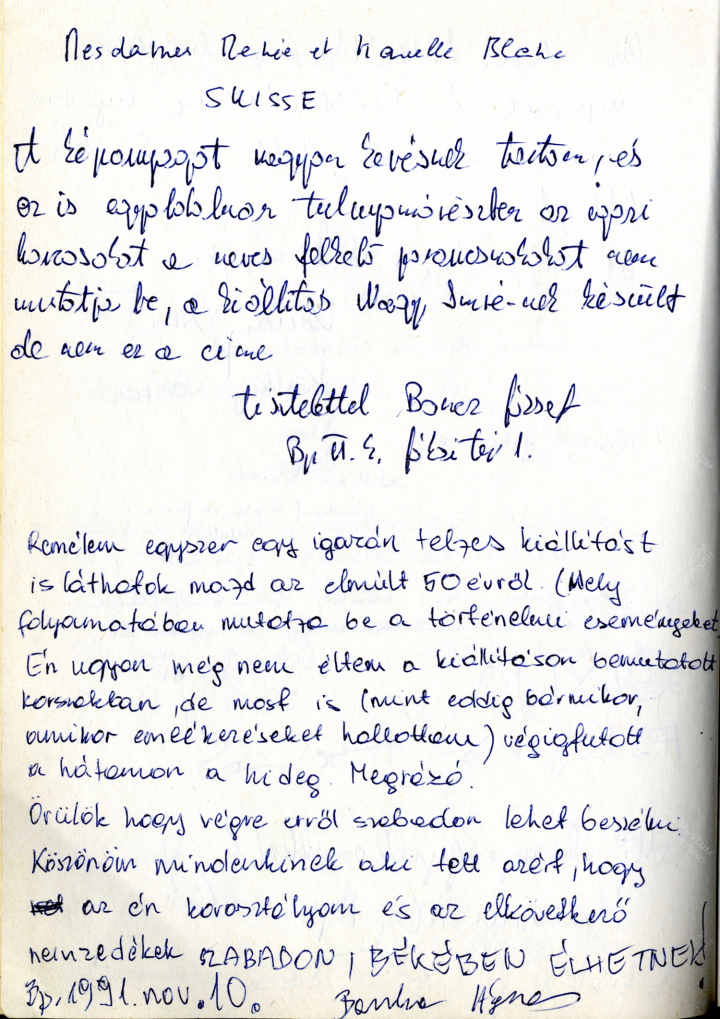 Mesdames Renée et Blanc
SUISSE
A képanyagot nagyon kevésnek tartom, és
ez is egyoldaluan tulnyomórészben az igazi
harcosokat a neves felkelő parancsnokokat nem
mutatja be, a kiállitas Nagy Imré-nek készült
de nem ez a cime
tisztelettel József
Bp II. k. tér 1.
Remélem egyszer egy igazán teljes kiállítást
is láthatok majd az elmúlt 50 évről. (Mely
folyamatában mutatja be a történelmi eseményeket
Én ugyan még nem éltem a kiállításon bemutatott
korszakban, de most is (mint eddig bármikor,
amikor emlékezéseket hallottam) végigfutott
a hátamon a hideg. Megrázó.
Örülök hogy végre erről szabadon lehet beszélni.
Köszönöm mindenkinek aki tett azért, hogy
az én korosztályom és az elkövetkező
nemzedékek SZABADON, BÉKÉBEN ÉLHETNEK!
Bp, 1991. nov. 10. Ágnes